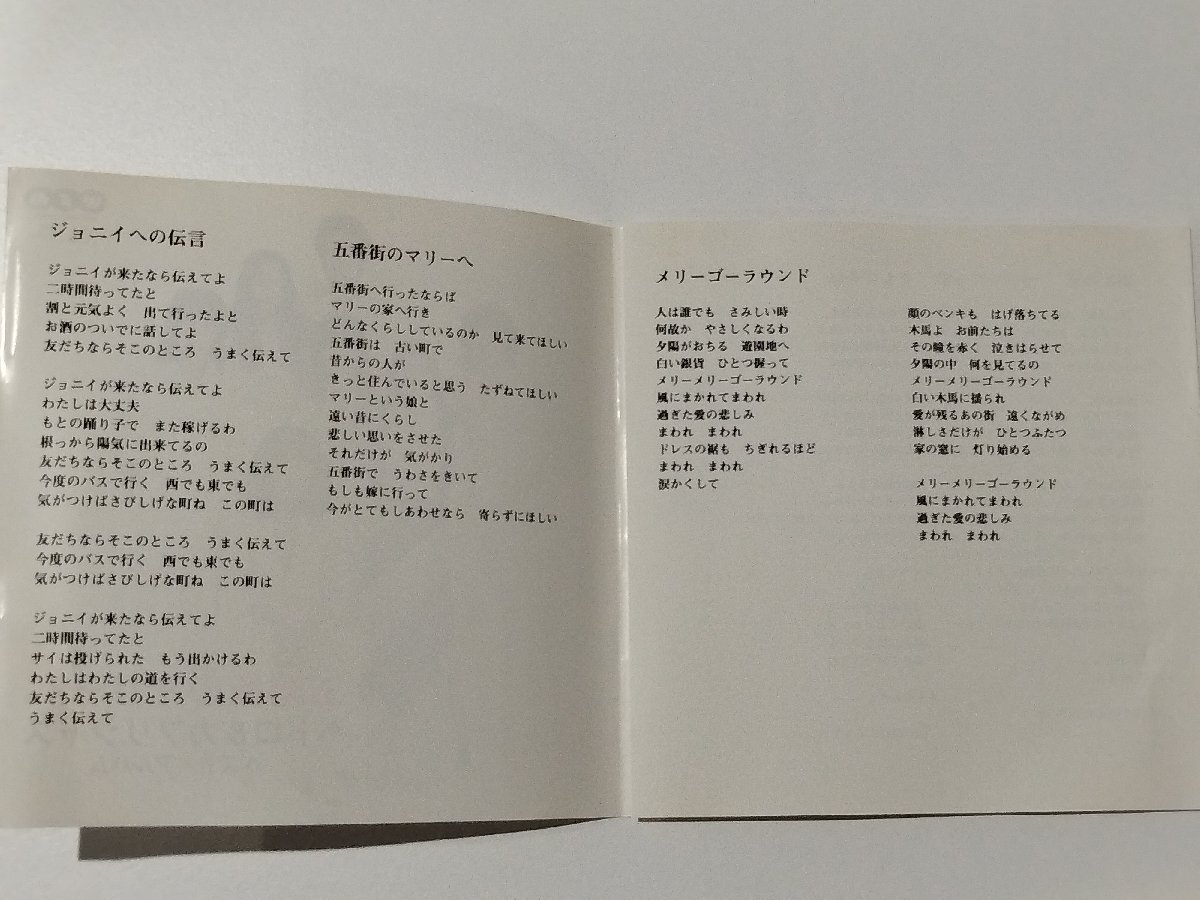 ジョニイへの伝言
ジョニイが来たなら伝えてよ
二時間待ってたと
割と元気よく　出て行ったよと
お酒のついでに話してよ
友だちならそこのところ　うまく伝えて
ジョニイが来たなら伝えてよ
わたしは大丈夫
もとの踊り子で　また稼げるわ
根っから陽気に出来てるの
友だちならそこのところ　うまく伝えて
今度のバスで行く　西でも東でも
気がつけばさびしげな町ね　この町は
友だちならそこのところ　うまく伝えて
今度のバスで行く　西でも東でも
気がつけばさびしげな町ね　この町は
ジョニイが来たなら伝えてよ
二時間待ってたと
サイは投げられた　もう出かけるわ
わたしはわたしの道を行く
友だちならそこのところ　うまく伝えて
うまく伝えて
五番街のマリーへ
五番街へ行ったならば
マリーの家へ行き
どんなくらししているのか　見て来てほしい
五番街は　古い町で
昔からの人が
きっと住んでいると思う　たずねてほしい
マリーという娘と
遠い昔にくらし
悲しい思いをさせた
それだけが　気がかり
五番街で　うわさをきいて
もしも嫁に行って
今がとてもしあわせなら　寄らずにほしい
メリーゴーラウンド
人は誰でも　さみしい時
何故か　やさしくなるわ
夕陽がおちる　遊園地へ
白い銀貨　ひとつ握って
メリーメリーゴーラウンド
風にまかれてまわれ
過ぎた愛の悲しみ
まわれ　まわれ
ドレスの裾も　ちぎれるほど
まわれ　まわれ
涙かくして
顔のペンキも　はげ落ちてる
木馬よ　お前たちは
その瞳を赤く　泣きはらせて
夕陽の中　何を見てるの
メリーメリーゴーラウンド
白い木馬に揺られ
愛が残るあの街　遠くながめ
淋しさだけが　ひとつふたつ
家の窓に　灯り始める
メリーメリーゴーラウンド
風にまかれてまわれ
過ぎた愛の悲しみ
まわれ　まわれ